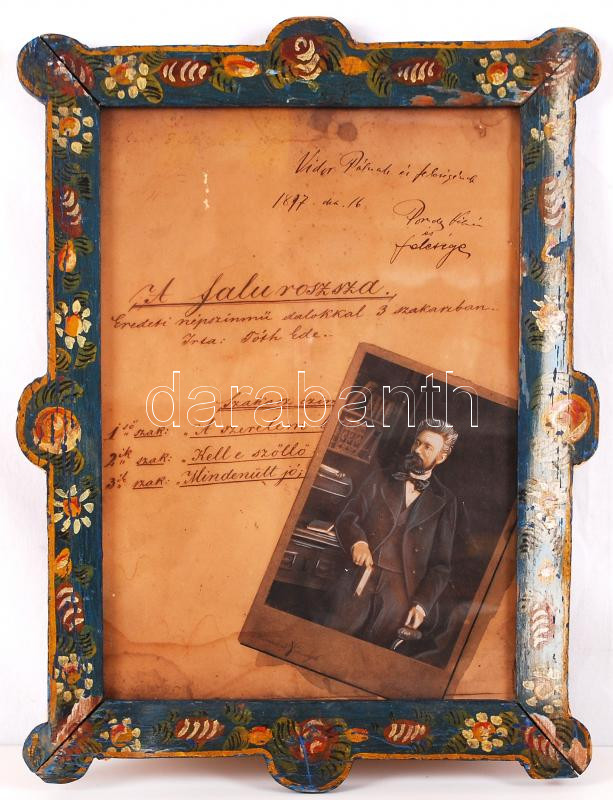 Vidor Pálnak és feleségének
1897. dec. 16.
és
felesége
A falu roszsza.
Eredeti népszinmű dalokkal 3 szakaszban.
Irta: Tóth Ede.
1ső szak: „A szerelem
2ik szak: „Kell e szőllő
3ik szak: „Mindenütt jó,
darabanth